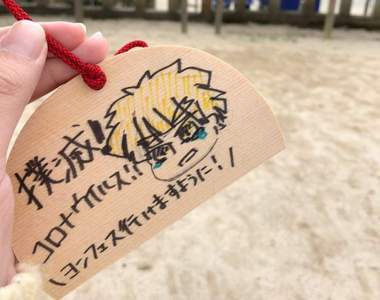 撲滅!
コロナウイルス!!
\ヨンフェス行けますように!/